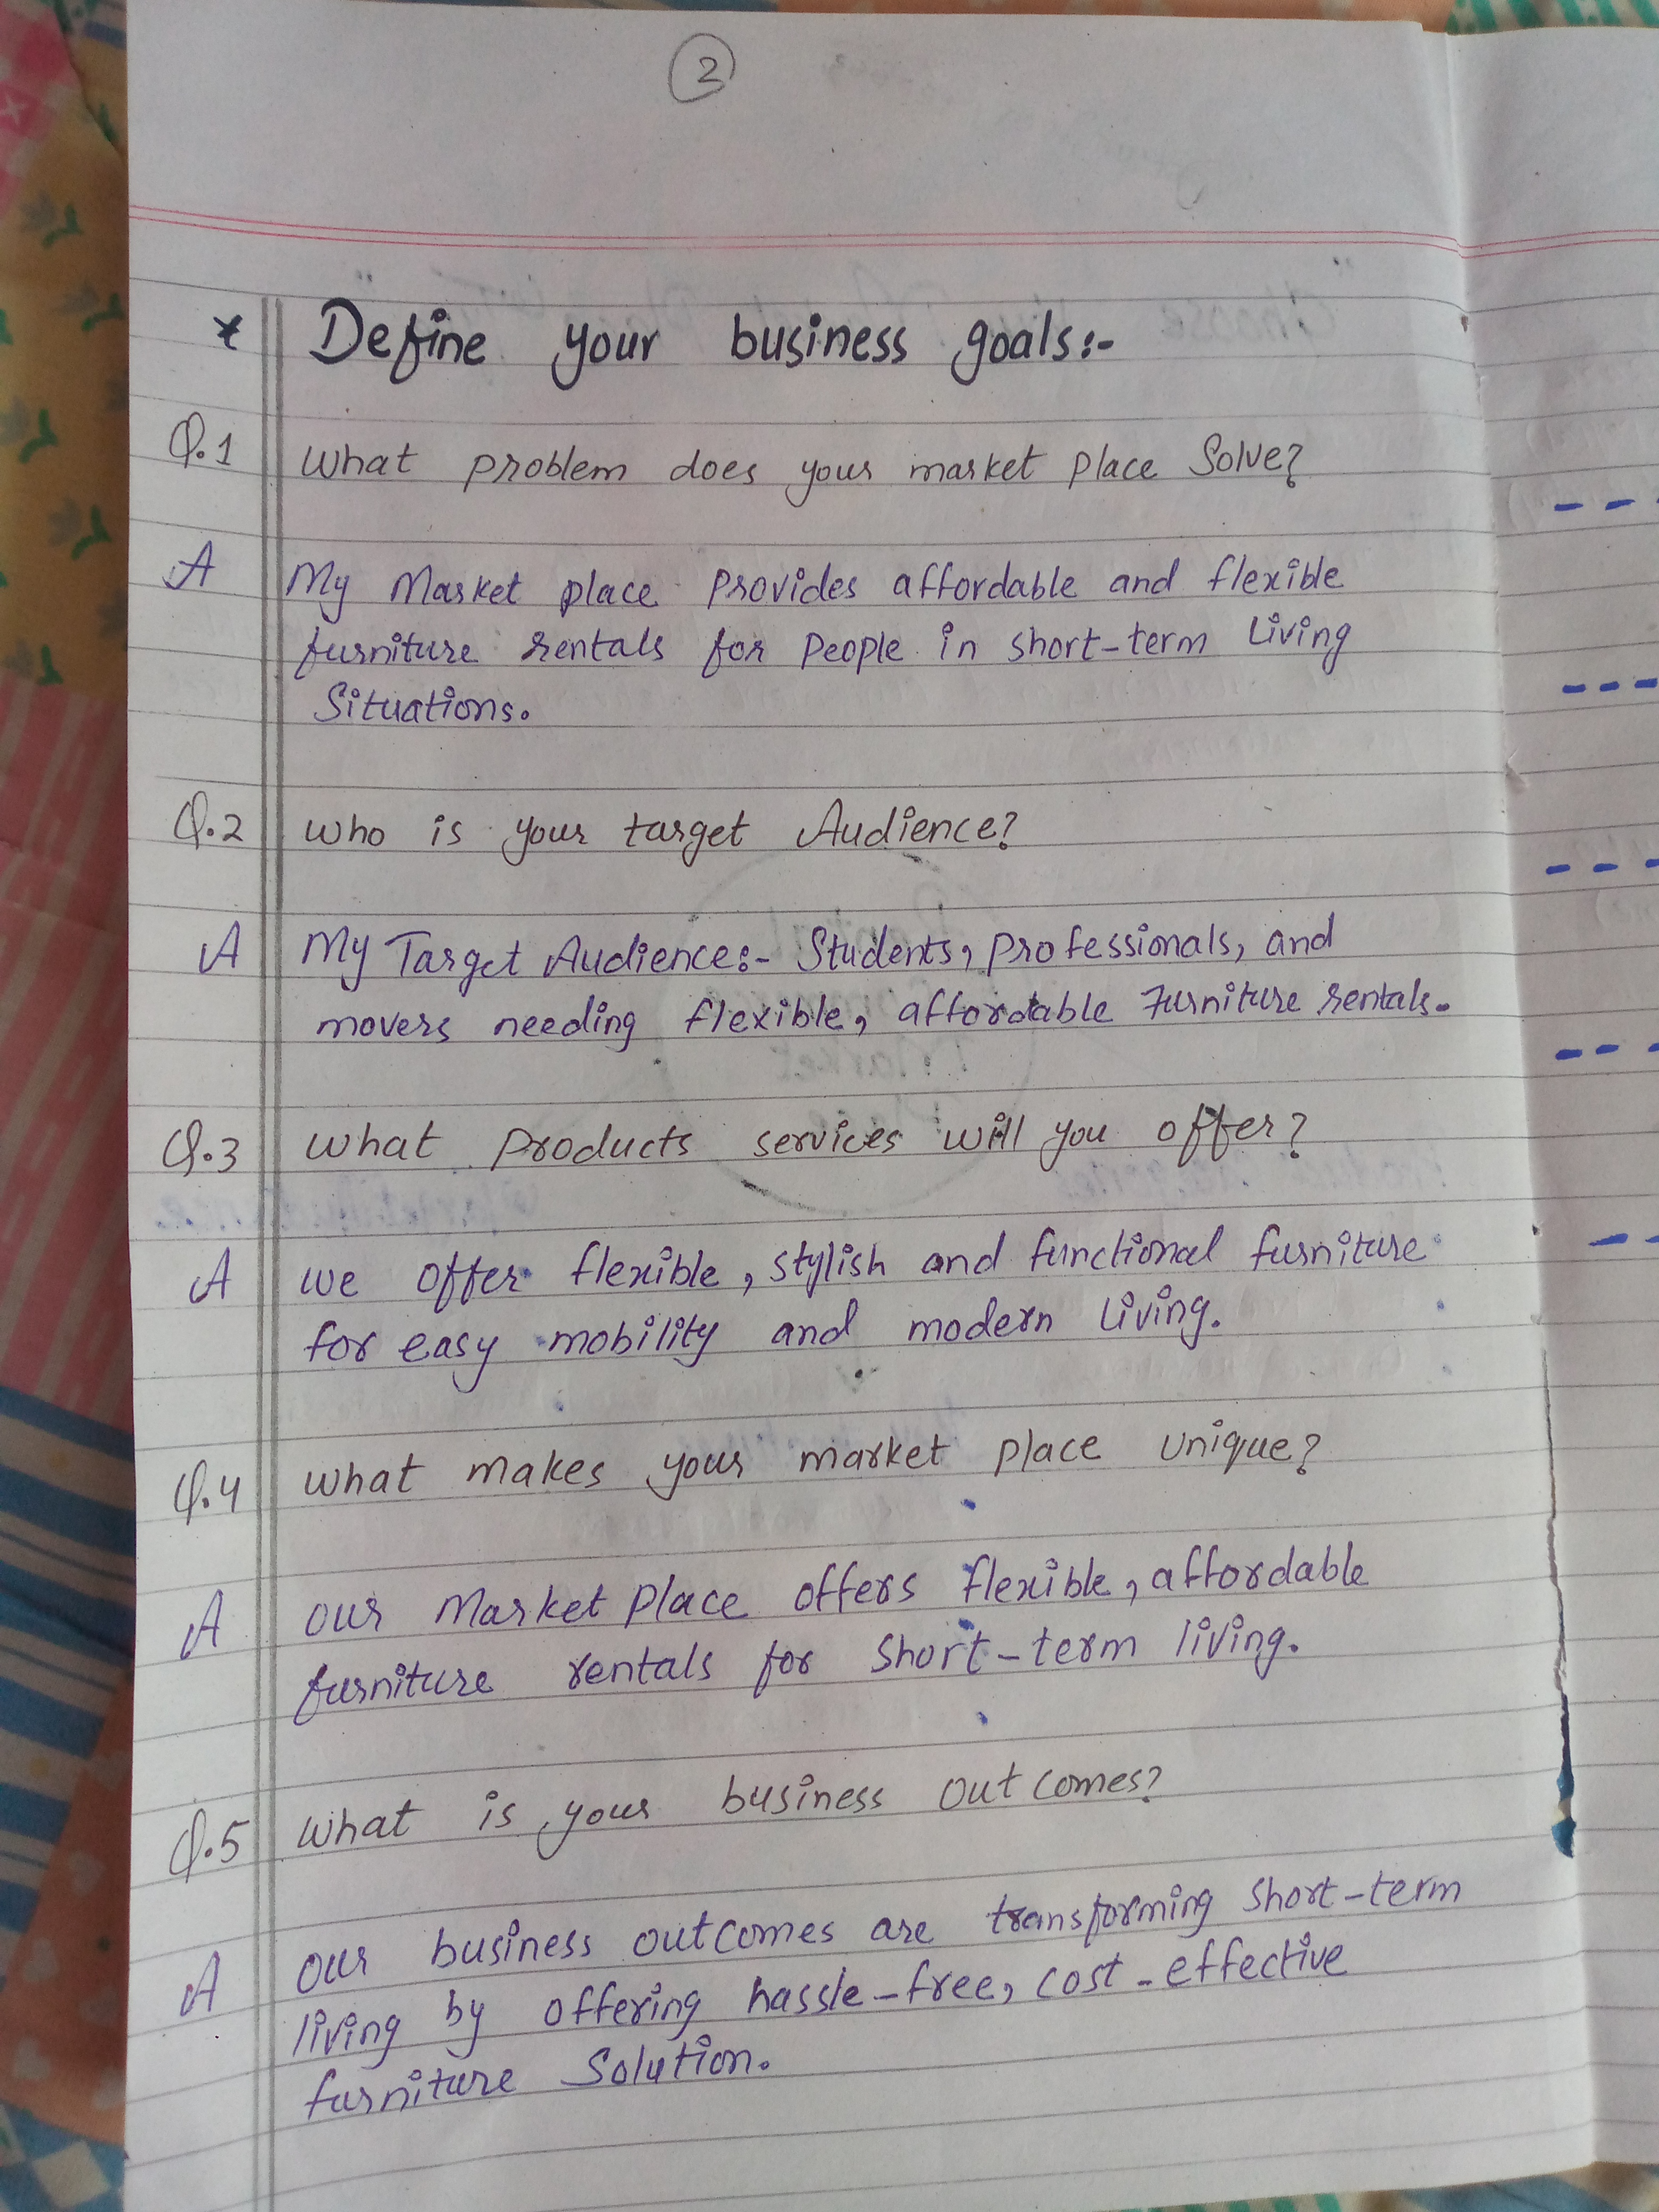 2
* Define your business goals:-
Q.1 What problem does your market place Solve?
A My Market place Provides affordable and flexible
furniture rentals for People in short-term Living
Situations.
Q.2 Who is your target Audience?
A My Target Audience:- Students, professionals, and
movers needing flexible, affordable Furniture rentals.
Q.3 What Products services will you offer?
A We offer flexible, stylish and functional furniture
for easy mobility and modern Living.
Q.4 What makes your market place unique?
A Our Market Place offers flexible, affordable
furniture rentals for Short-term living.
Q.5 What is your business out comes?
A Our business outcomes are transforming Short-term
living by offering hassle-free, cost-effective
furniture Solution.